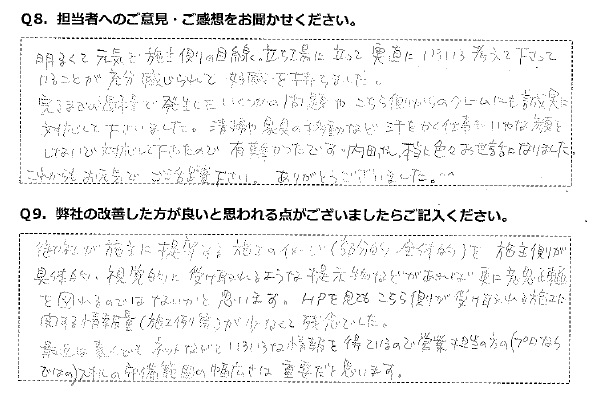 Q8. 担当者へのご意見・ご感想をお聞かせください。
明るくて元気で施主側の目線、立ち工場に立って実直にいろいろ考えて下さって
いることが充分感じられて好感を持ちました。
完了までの過程で発生したいくつかの問題やこちら側からのクレームにも誠実に
対応して下さいました。清掃や家具の移動など汗をかく仕事もいやな顔を
しないで対応して下さったので有難かったです。内田さん、本当に色々お世話になりました。
これからもお元気でご活躍下さい。ありがとうございました。^^
Q9. 弊社の改善した方が良いと思われる点がございましたらご記入ください。
御社が施主に提案なる施工のイメージ(部分的・全体的)を施主側が
具体的、視覚的に受け取れるような提示物などがあれば更に意思疎通
を図れるのではないかと思います。HPを見てもこちら側が受け取れる施工に
関する情報量(施工例等)が少なくて残念でした。
最近は素人でもネットなどでいろいろな情報を得ているので営業担当の方の(プロなら
ではの)スキルの守備範囲の幅広さは重要だと思います。